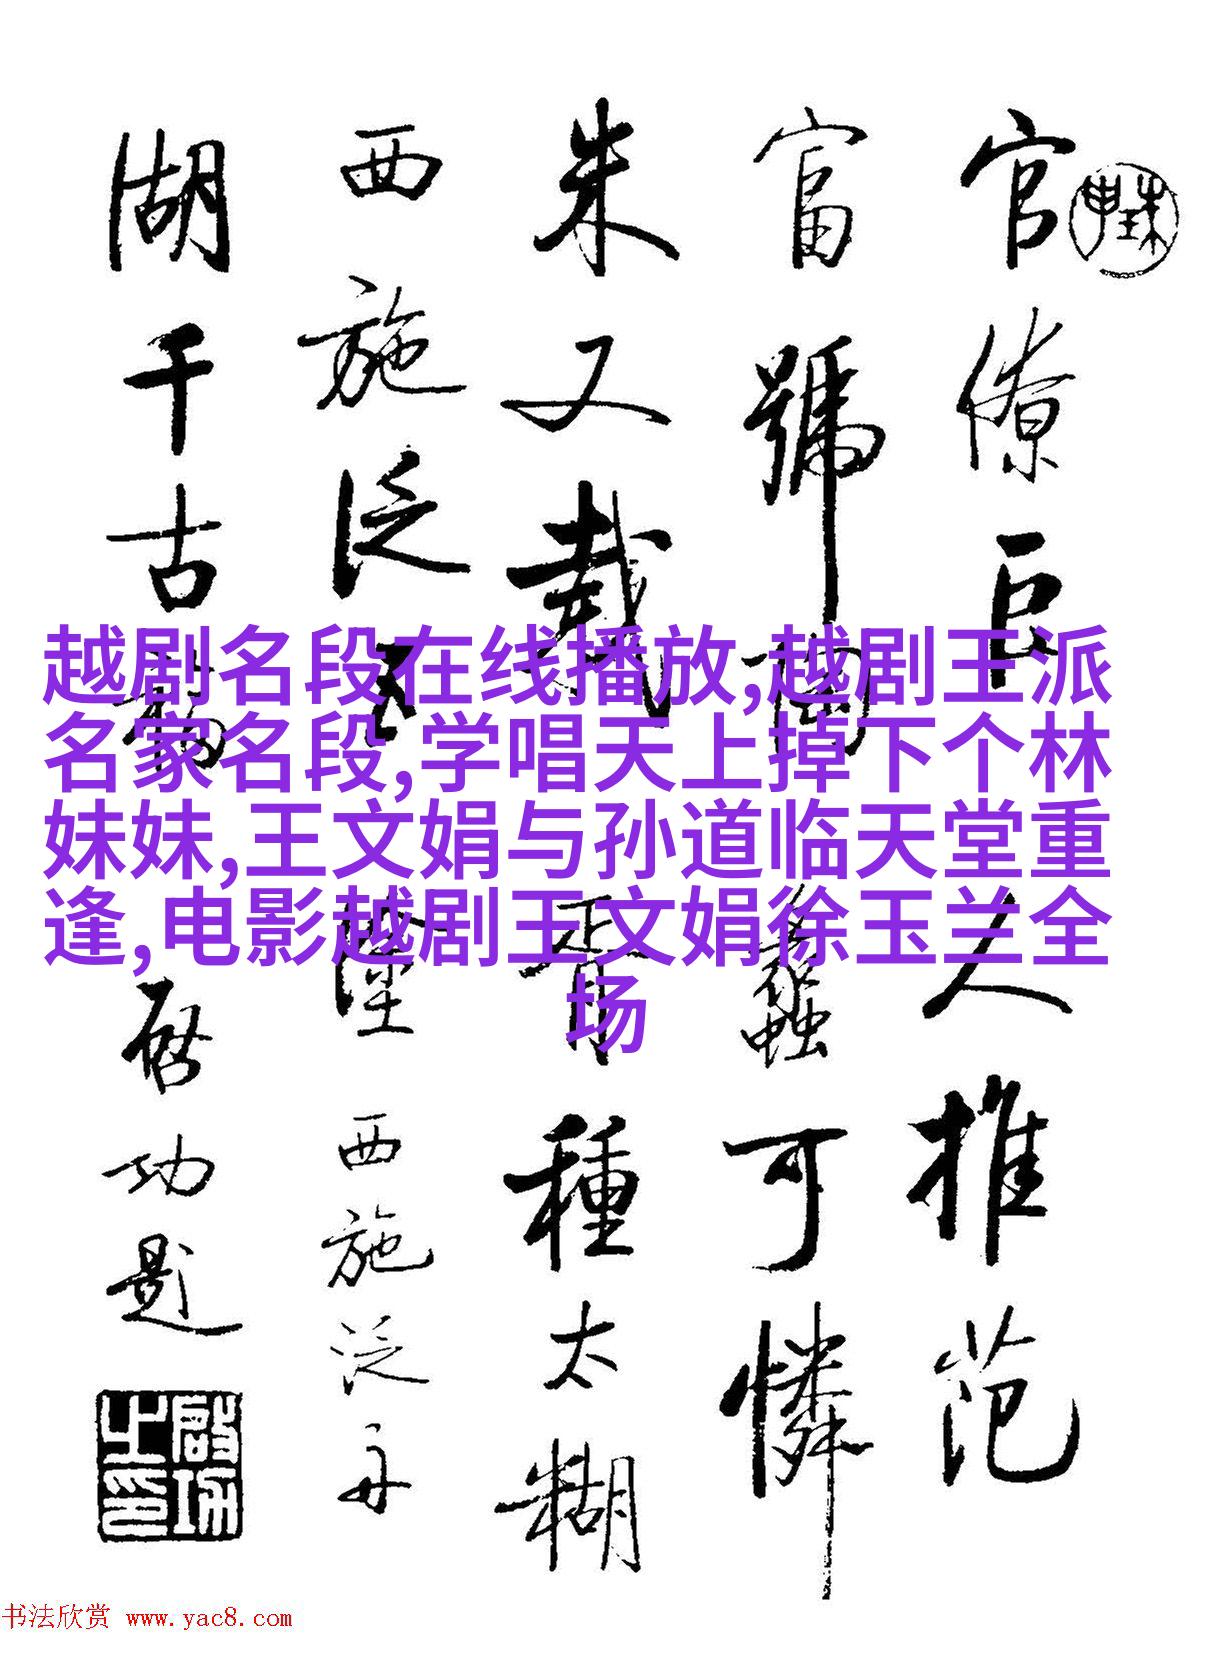 官僚巨人推范
富號陶蠡可憐
朱又載胥種太糊
西施泛五塗
西施泛舟
湖千古
啓功題
啟功之印
越剧名段在线播放,越剧王派
名家名段,学唱天上掉下个林
妹妹,王文娟与孙道临天堂重
逢,电影越剧王文娟徐玉兰全
场
书法欣赏 www.yac8.com